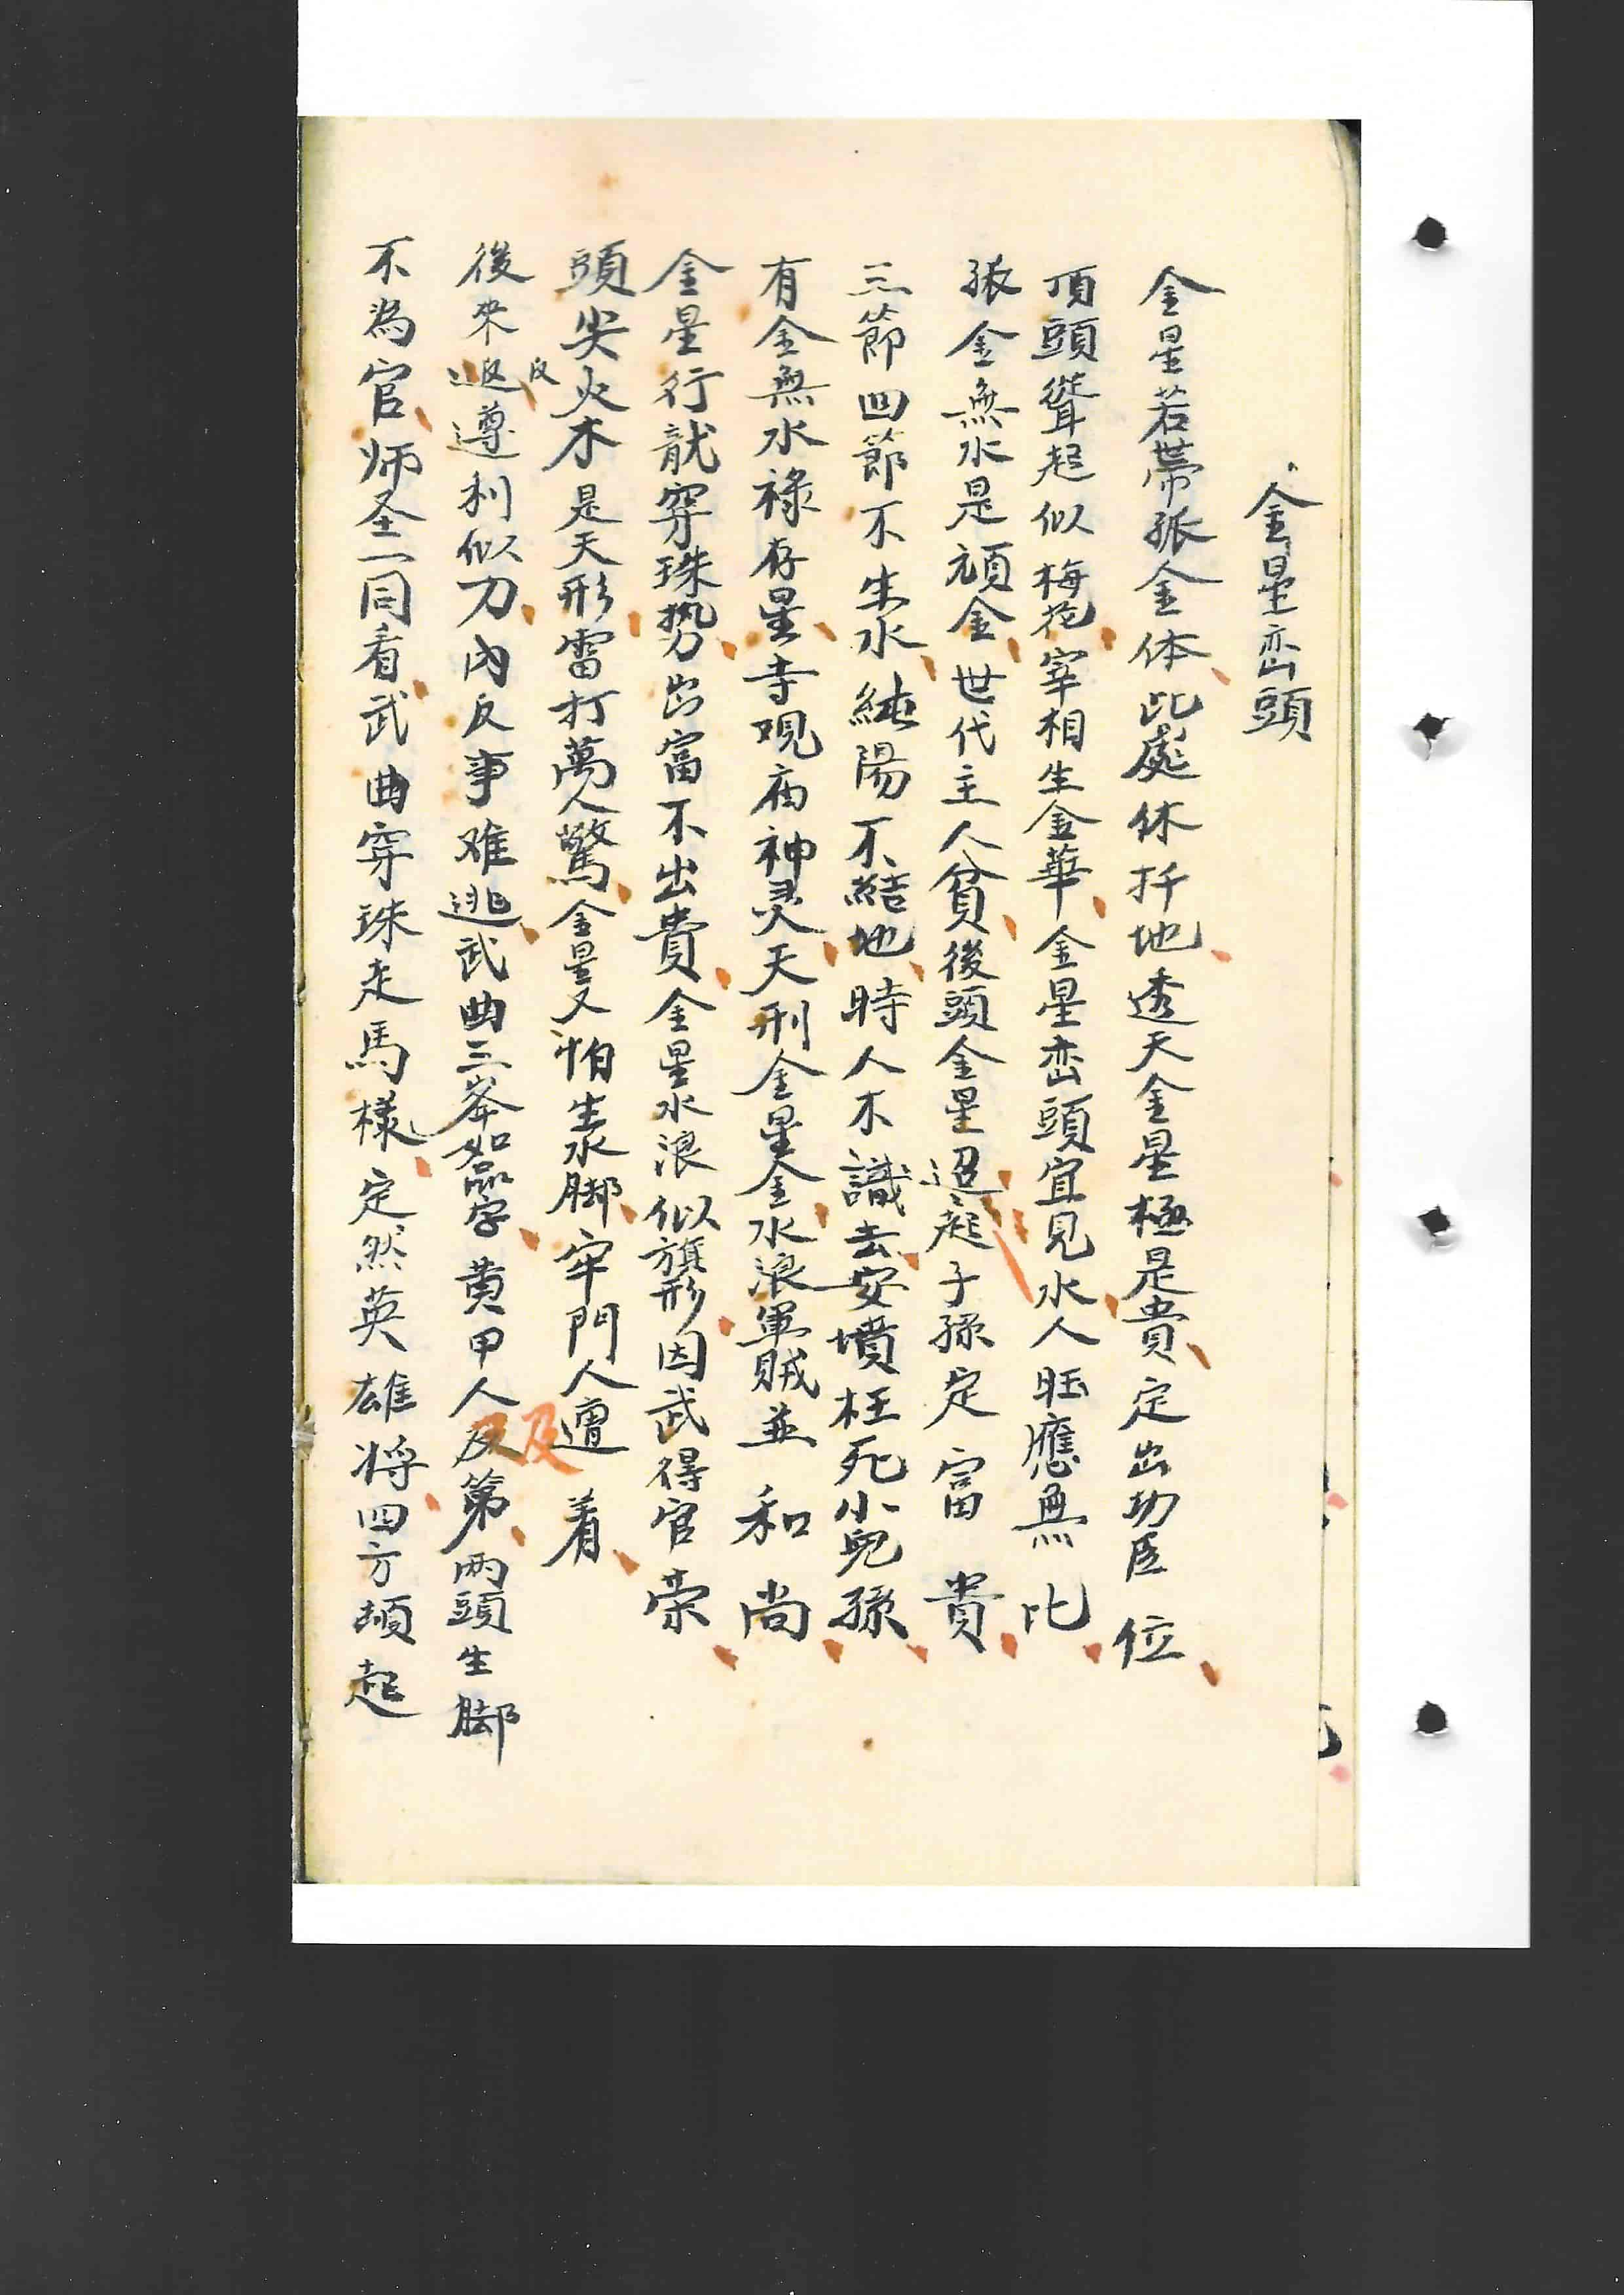 金星峦頭
金星若帶孤金体此處休扦地透天金星極是貴定出功臣位
頂頭聳起似梅花宰相生金華金星峦頭宜見水人旺應無比
孤金無水是頑金世代主人貧後頭金星迢起子孫定富貴
三節四節不生水純陽不結地時人不識去安墳枉死小兒孫
有金無水祿存星寺現庙神灵天刑金星金水浪軍賊並和尚
金星行龍穿珠势出富不出貴金星水浪似旗形因武得官荣
頭尖火木是天形雷打萬人驚金星又怕生水脚牢門人遭着
後来返遵利似刀內反事难逃武曲三峯如品字黄甲人及第两頭生脚
不為官师圣一同看武曲穿珠走馬樣定然英雄将四方頓起
反
及